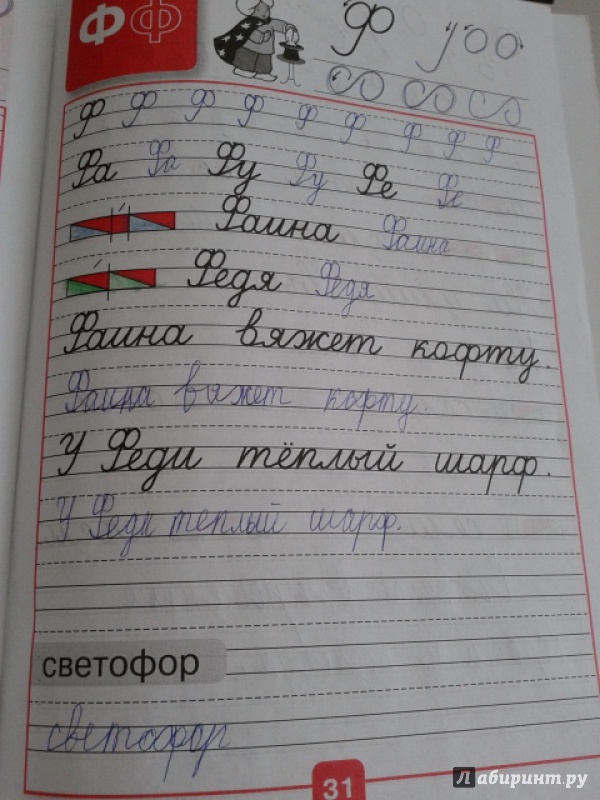 Ф Ф
Ф
Ф Ф Ф Ф Ф Ф Ф Ф Ф
Фа Фа Фу Фу Фе Фе
Фаина Фаина
Федя Федя
Фаина вяжет кофту.
Фаина вяжет кофту.
У Феди тёплый шарф.
У Феди теплый шарф.
светофор
светофор
31
Лабиринт.ру